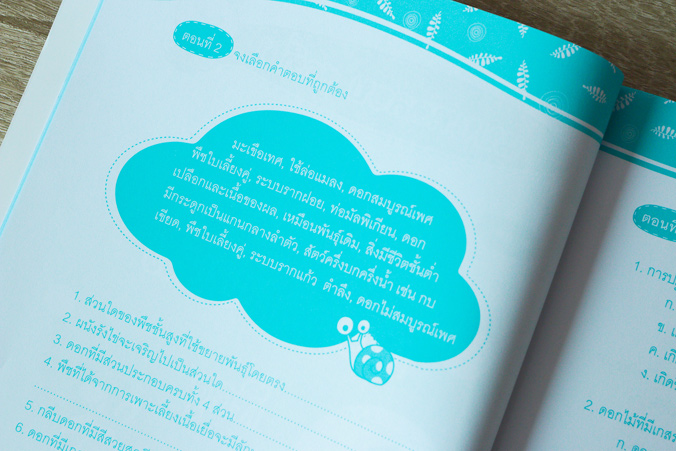 ตอนที่ 2
จงเลือกคำตอบที่ถูกต้อง
มะเขือเทศ, ใช้ล่อแมลง, ดอกสมบูรณ์เพศ
พืชใบเลี้ยงคู่, ระบบรากฝอย, ท่อมัลพิเกียน, ดอก
เปลือกและเนื้อของผล, เหมือนพันธุ์เดิม, สิ่งมีชีวิตชั้นต่ำ
มีกระดูกเป็นแกนกลางลำตัว, สัตว์ครึ่งบกครึ่งน้ำ เช่น กบ
เขียด, พืชใบเลี้ยงคู่, ระบบรากแก้ว ตำลึง, ดอกไม่สมบูรณ์เพศ
1. ส่วนใดของพืชชั้นสูงที่ใช้ขยายพันธุ์โดยตรง
2. ผนังรังไข่จะเจริญไปเป็นส่วนใด
3. ดอกที่มีส่วนประกอบครบทั้ง 4 ส่วน
4. พืชที่ได้จากการเพาะเลี้ยงเนื้อเยื่อจะมี
5. กลีบดอกที่มีสีสวย
6. ดอกที่มี
ตอนที่
1. การ
ก.
ข.
ค.
ง. เกิด
2. ดอกไม้ที่มีเกส
ก.